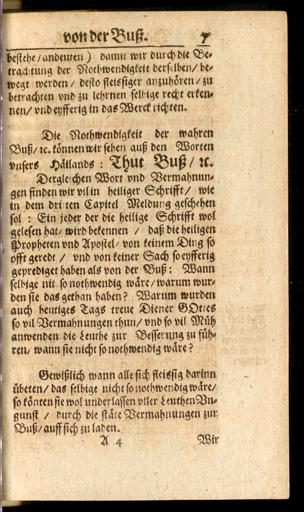 von der Buß. 7
bestehe / andeuten ) damit wir durch die Be-
trachtung der Nothwendigkeit derselben / be-
wegt werden / desto fleissiger anzuhören / zu
betrachten vnd zu lehrnen selbige recht erken-
nen / vnd eyfferig in das Werck richten.
Die Nothwendigkeit der wahren
Buß / ꝛc. können wir sehen auß den Worten
vnsers Häilands : Thut Buß / ꝛc.
Dergleichen Wort vnd Vermahnun-
gen finden wir vil in heiliger Schrifft / wie
in dem dritten Capitel Meldung geschehen
sol : Ein jeder der die heilige Schrifft wol
gelesen hat / wird bekennen / daß die heiligen
Propheten vnd Apostel / von keinem Ding so
offt geredt / vnd von keiner Sach so eyfferig
geprediget haben als von der Buß : Wann
selbige nit so nothwendig wäre / warum wur-
den sie das gethan haben ? Warum wurden
auch heutiges Tags treue Diener GOttes
so vil Vermahnungen thun / vnd so vil Müh
anwenden die Leuthe zur Besserung zu füh-
ren / wann sie nicht so nothwendig wäre ?
Gewißlich wann alle sich fleissig darinn
übeten / das selbige nicht so nothwendig wäre /
so könten sie wol underlassen viler Leuthen Vn-
gunst / durch die stäte Vermahnungen zur
Buß / auff sich zu laden.
A 4 Wir